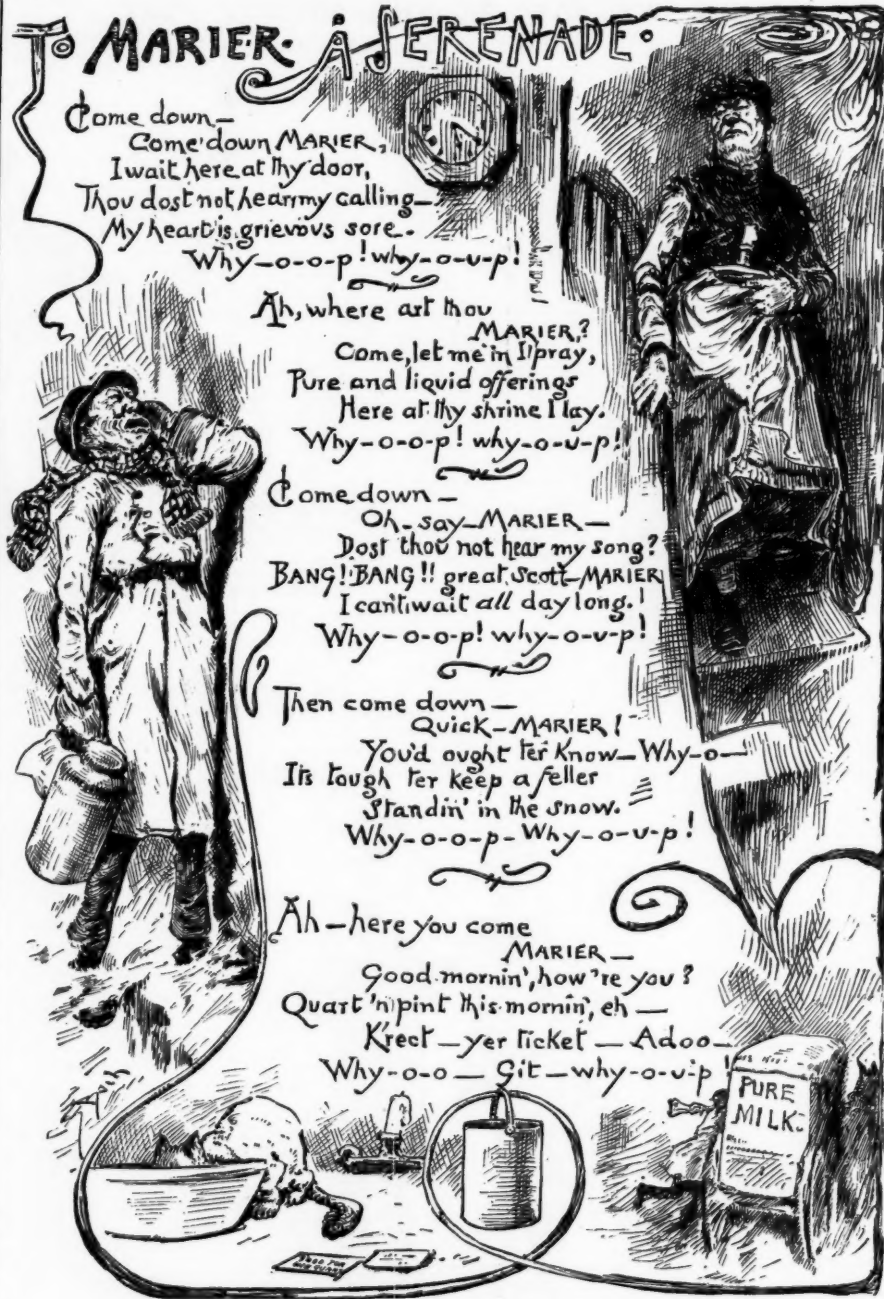 TO MARIER. A SERENADE.
Come down—
Come down MARIER,
I wait here at thy door,
Thou dost not hear my calling—
My heart is grievous sore.
Why-o-o-p! why-o-u-p!
Ah, where art thou
MARIER?
Come, let me in I pray,
Pure and liquid offerings
Here at thy shrine I lay.
Why-o-o-p! why-o-u-p!
Come down—
Oh-say-MARIER—
Dost thou not hear my song?
BANG!! BANG!! great Scott-MARIER
I can't wait all day long.!
Why-o-o-p! why-o-u-p!
Then come down—
Quick-MARIER!
You'd ought ter know-Why-o—
Its tough ter keep a feller
Standin' in the snow.
Why-o-o-p-Why-o-u-p!
Ah-here you come
MARIER—
Good mornin', how're you?
Quart 'n pint this mornin', eh—
K'rect-yer ticket-Adoo—
Why-o-o-Git-why-o-u-p!
PURE
MILK.